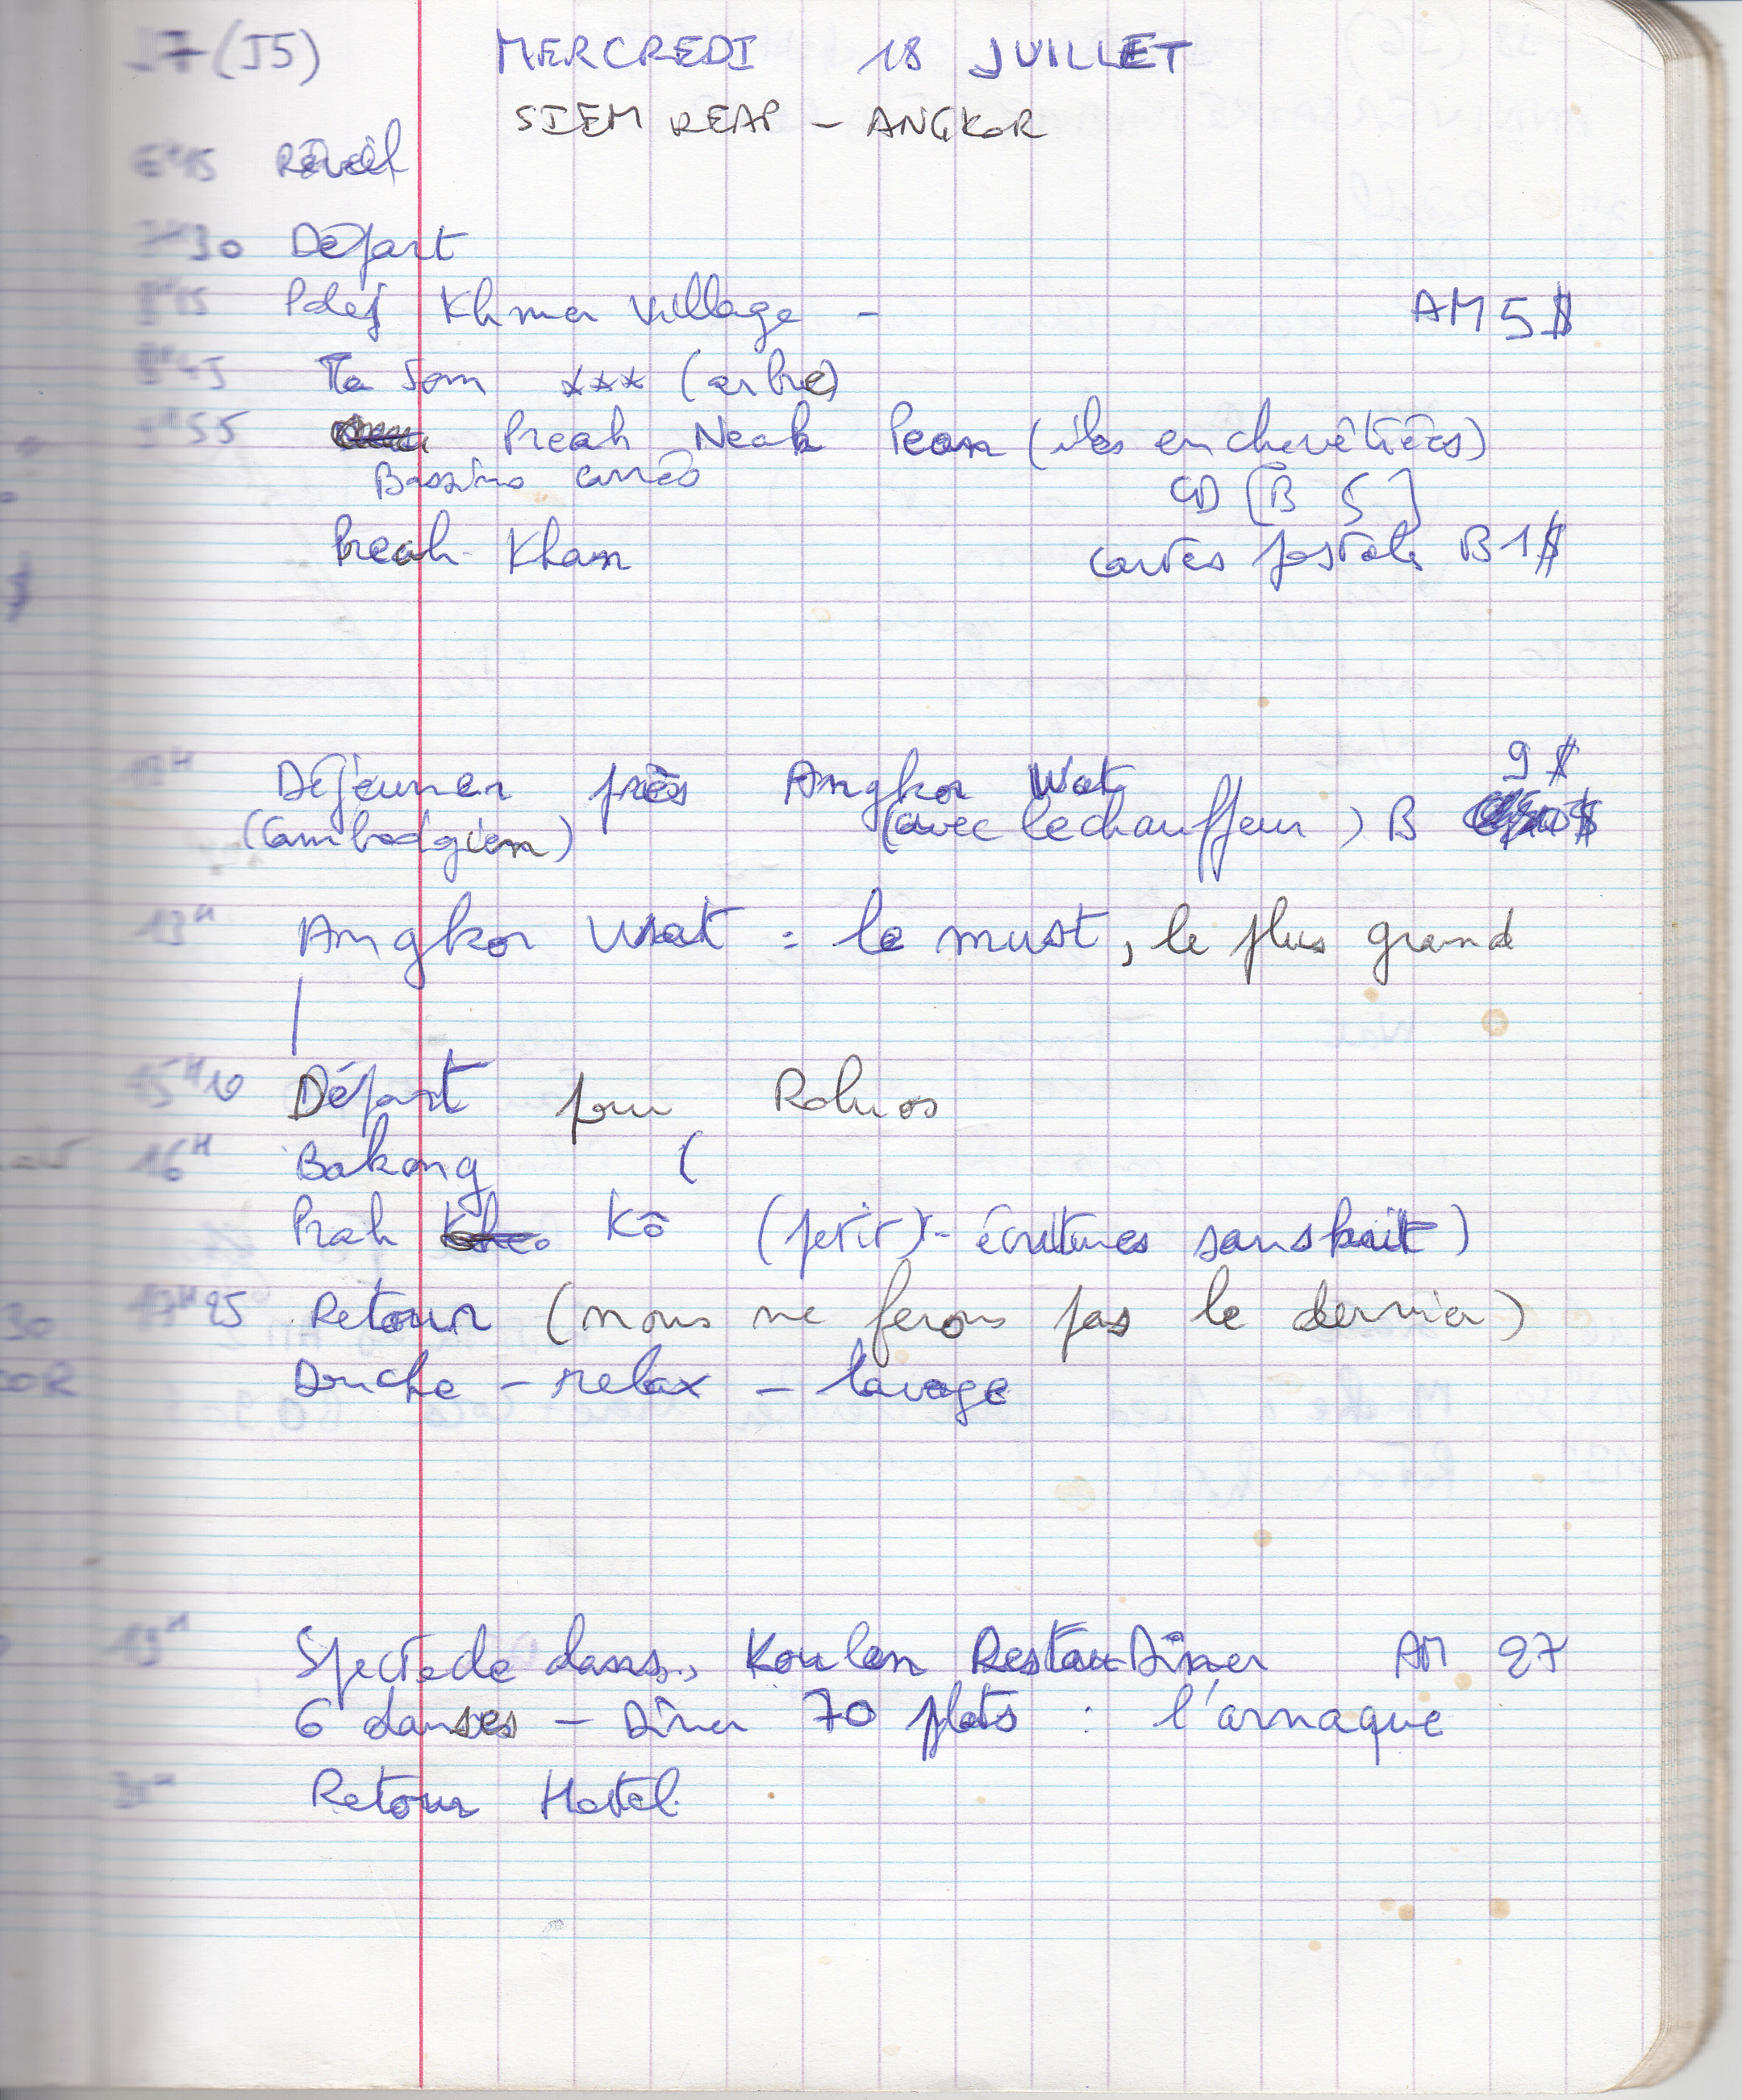 17 (J5) MERCREDI 18 JUILLET
SIEM REAP - ANGKOR
6H15 Réveil
7H30 Départ
8H15 Pdej Khmer Village - AM 5 $
8H45 Ta Som *** (arbre)
9H55 Preah Neak Pean (îles enchevêtrées)
Bassins carrés CD [B 5]
Preah Khan cartes postales B 1 $
9 $
Déjeuner près Angkor Wat
(Cambodgien) (avec le chauffeur) B
13H Angkor Wat = le must, le plus grand
15H10 Départ pour Roluos
16H Bakong (
Prah Kô (petit) - écritures sanskrit)
17H25 Retour (nous ne ferons pas le dernier)
Douche - relax - lavage
19H Spectacle danses, Koulen Restau Dîner AM 27
6 danses - Dîner 70 plats : l'arnaque
Retour Hotel.